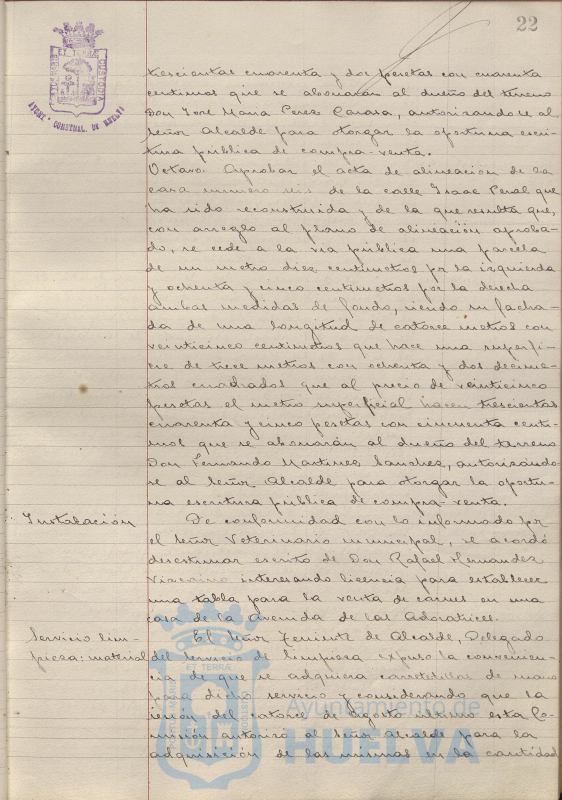 22
PORTUS MARIS ET TERRÆ CUSTODIA
AYUNT.º CONSTNAL. DE HUELVA
trescientas cuarenta y dos pesetas con cuarenta
centimos que se abonarán al dueño del terreno
Don José Maria Perez Carasa, autorizandose al
señor Alcalde para otorgar la oportuna escri-
tura pública de compra-venta.
Octavo: Aprobar el acta de alineación de la
casa número seis de la calle Isaac Peral que
ha sido reconstruida y de la que resulta que,
con arreglo al plano de alineación aproba-
do, se cede a la via pública una parcela
de un metro diez centimetros por la izquierda
y ochenta y cinco centimetros por la derecha
ambas medidas de fondo, siendo su facha-
da de una longitud de catorce metros con
veinticinco centimetros que hace una superfi-
cie de trece metros con ochenta y dos decime-
tros cuadrados que al precio de veinticinco
pesetas el metro superficial hacen trescientas
cuarenta y cinco pesetas con cincuenta centi-
mos que se abonarán al dueño del terreno
Don Fernando Martinez Sanchez, autorizando-
se al Señor Alcalde para otorgar la oportu-
na escritura pública de compra-venta.
Instalación
De conformidad con lo informado por
el Señor Veterinario municipal, se acordó
desestimar escrito de Don Rafael Hernandez
interesando licencia para establecer
una tabla para la venta de carnes en una
casa de la Avenida de las Adoratrices.
Servicio lim-
pieza: material
El Señor Teniente de Alcalde, Delegado
del servicio de limpieza expuso la convenien-
cia de que se adquiera carretillas de mano
para dicho servicio y considerando que la
sesion del catorce de Agosto ultimo esta Co-
misión autorizó al Señor Alcalde para la
adquisición de las mismas en la cantidad
Ayuntamiento de
HUELVA